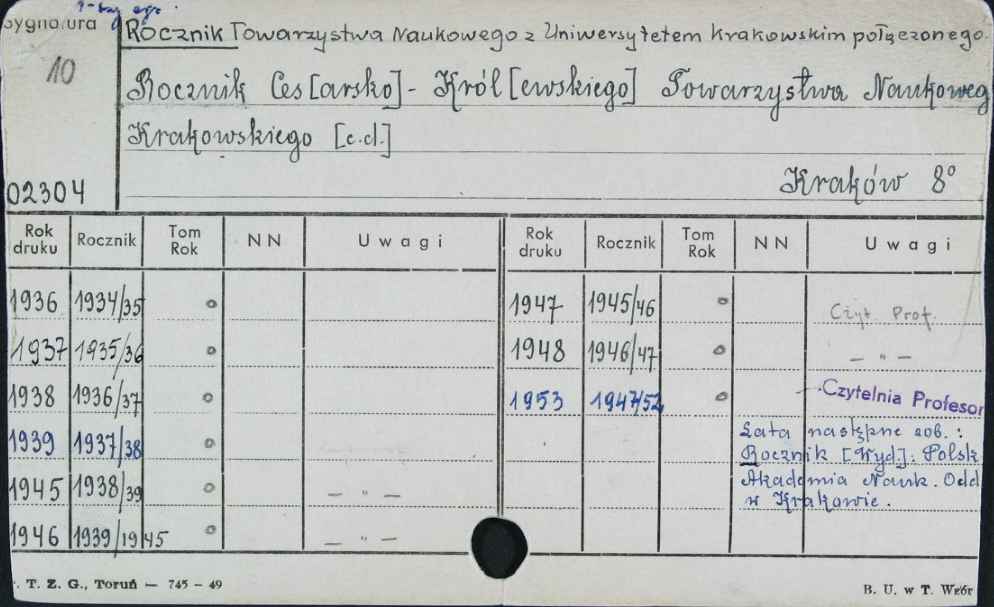 2-gi egz.
Sygnatura
10
02304
Rocznik Towarzystwa Naukowego z Uniwersytetem Krakowskim połączonego.
Rocznik Ces[arsko]- Król[ewskiego] Towarzystwa Naukoweg
Krakowskiego [c.d.]
Kraków 8°
Rok druku Rocznik Tom Rok NN Uwagi Rok druku Rocznik Tom Rok NN Uwagi
1936 1934/35 o 1947 1945/46 o Czyt. Prof.
1937 1935/36 o 1948 1946/47 o — " —
1938 1936/37 o 1953 1947/52 o Czytelnia Profesor
1939 1937/38 o Lata następne zob.:
Rocznik [Wyd]: Polsk
1945 1938/39 o — " — Akademia Nauk. Odd
w Krakowie.
1946 1939/1945 o — " —
T. Z. G., Toruń — 745 - 49 B. U. w T. Wzór